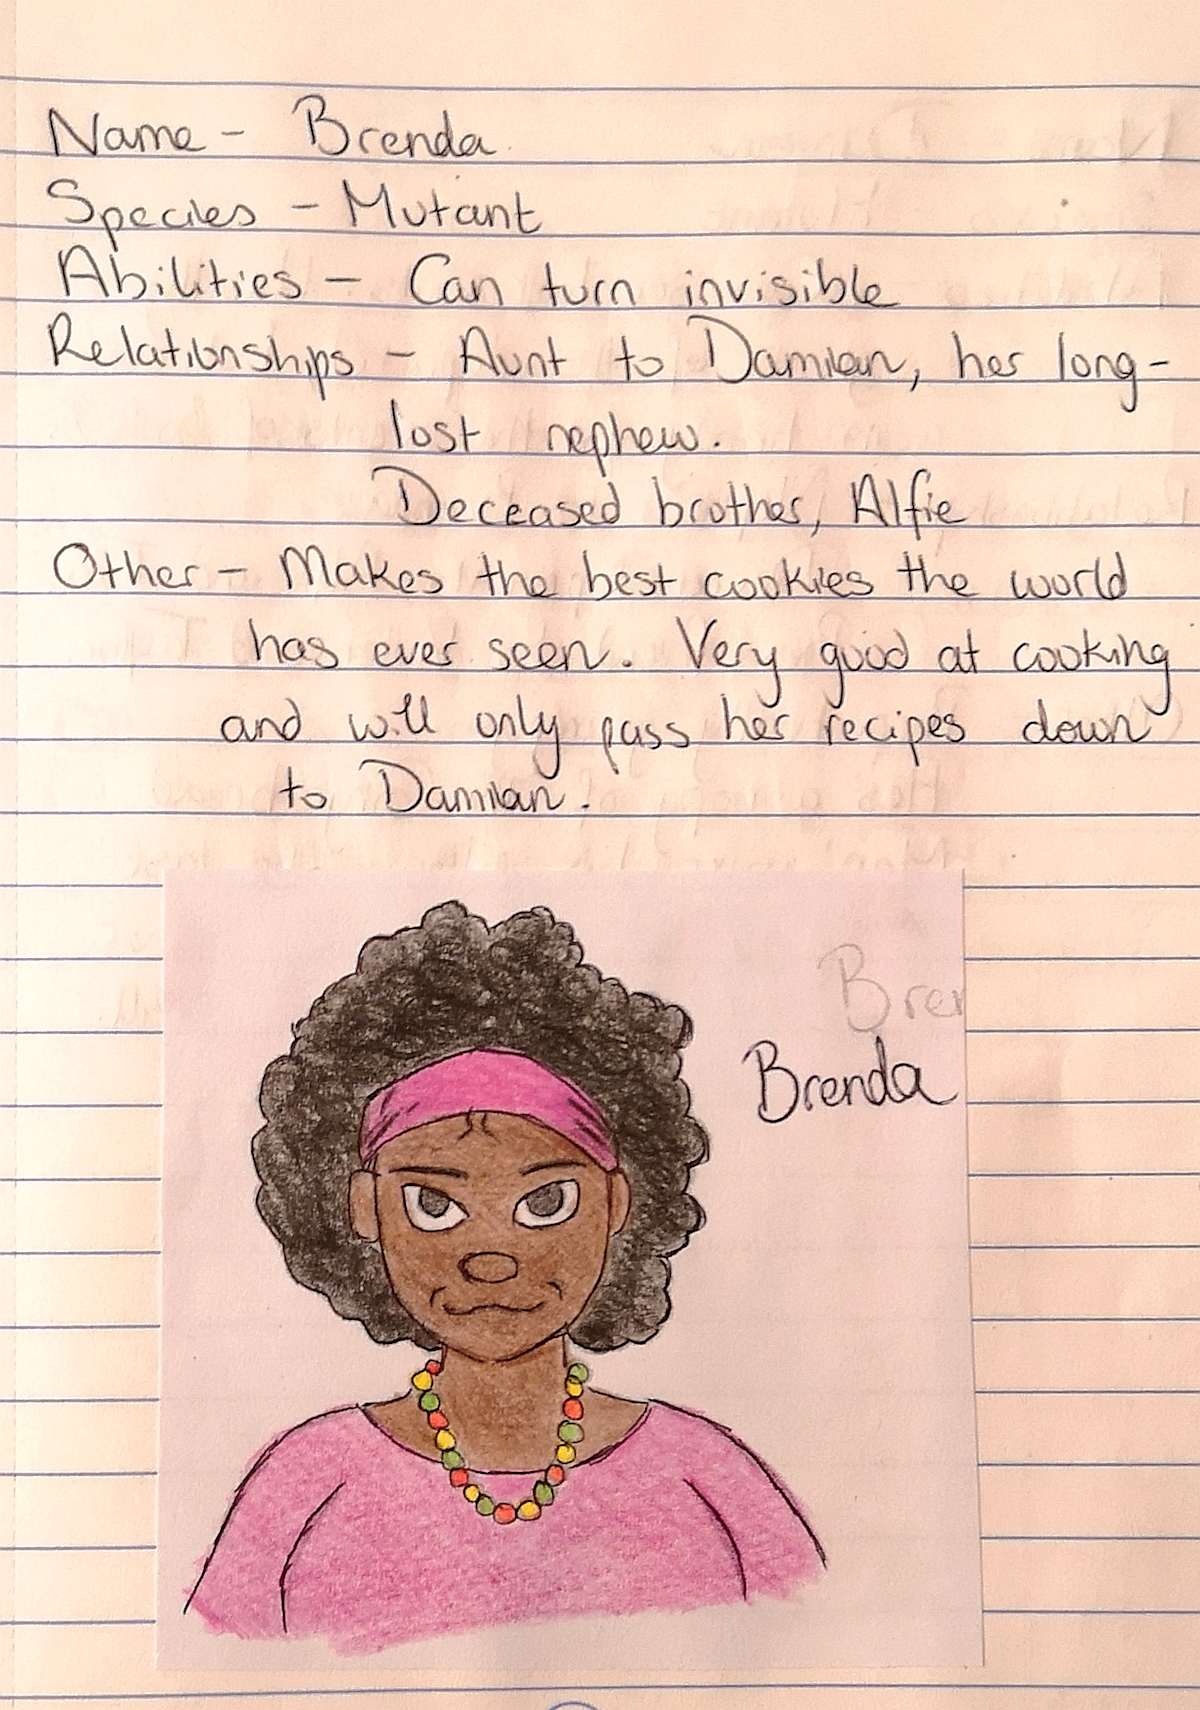 Name - Brenda
Species - Mutant
Abilities - Can turn invisible
Relationships - Aunt to Damian, her long-
lost nephew.
Deceased brother, Alfie
Other - Makes the best cookies the world
has ever seen. Very good at cooking
and will only pass her recipes down
to Damian.
Bren
Brenda